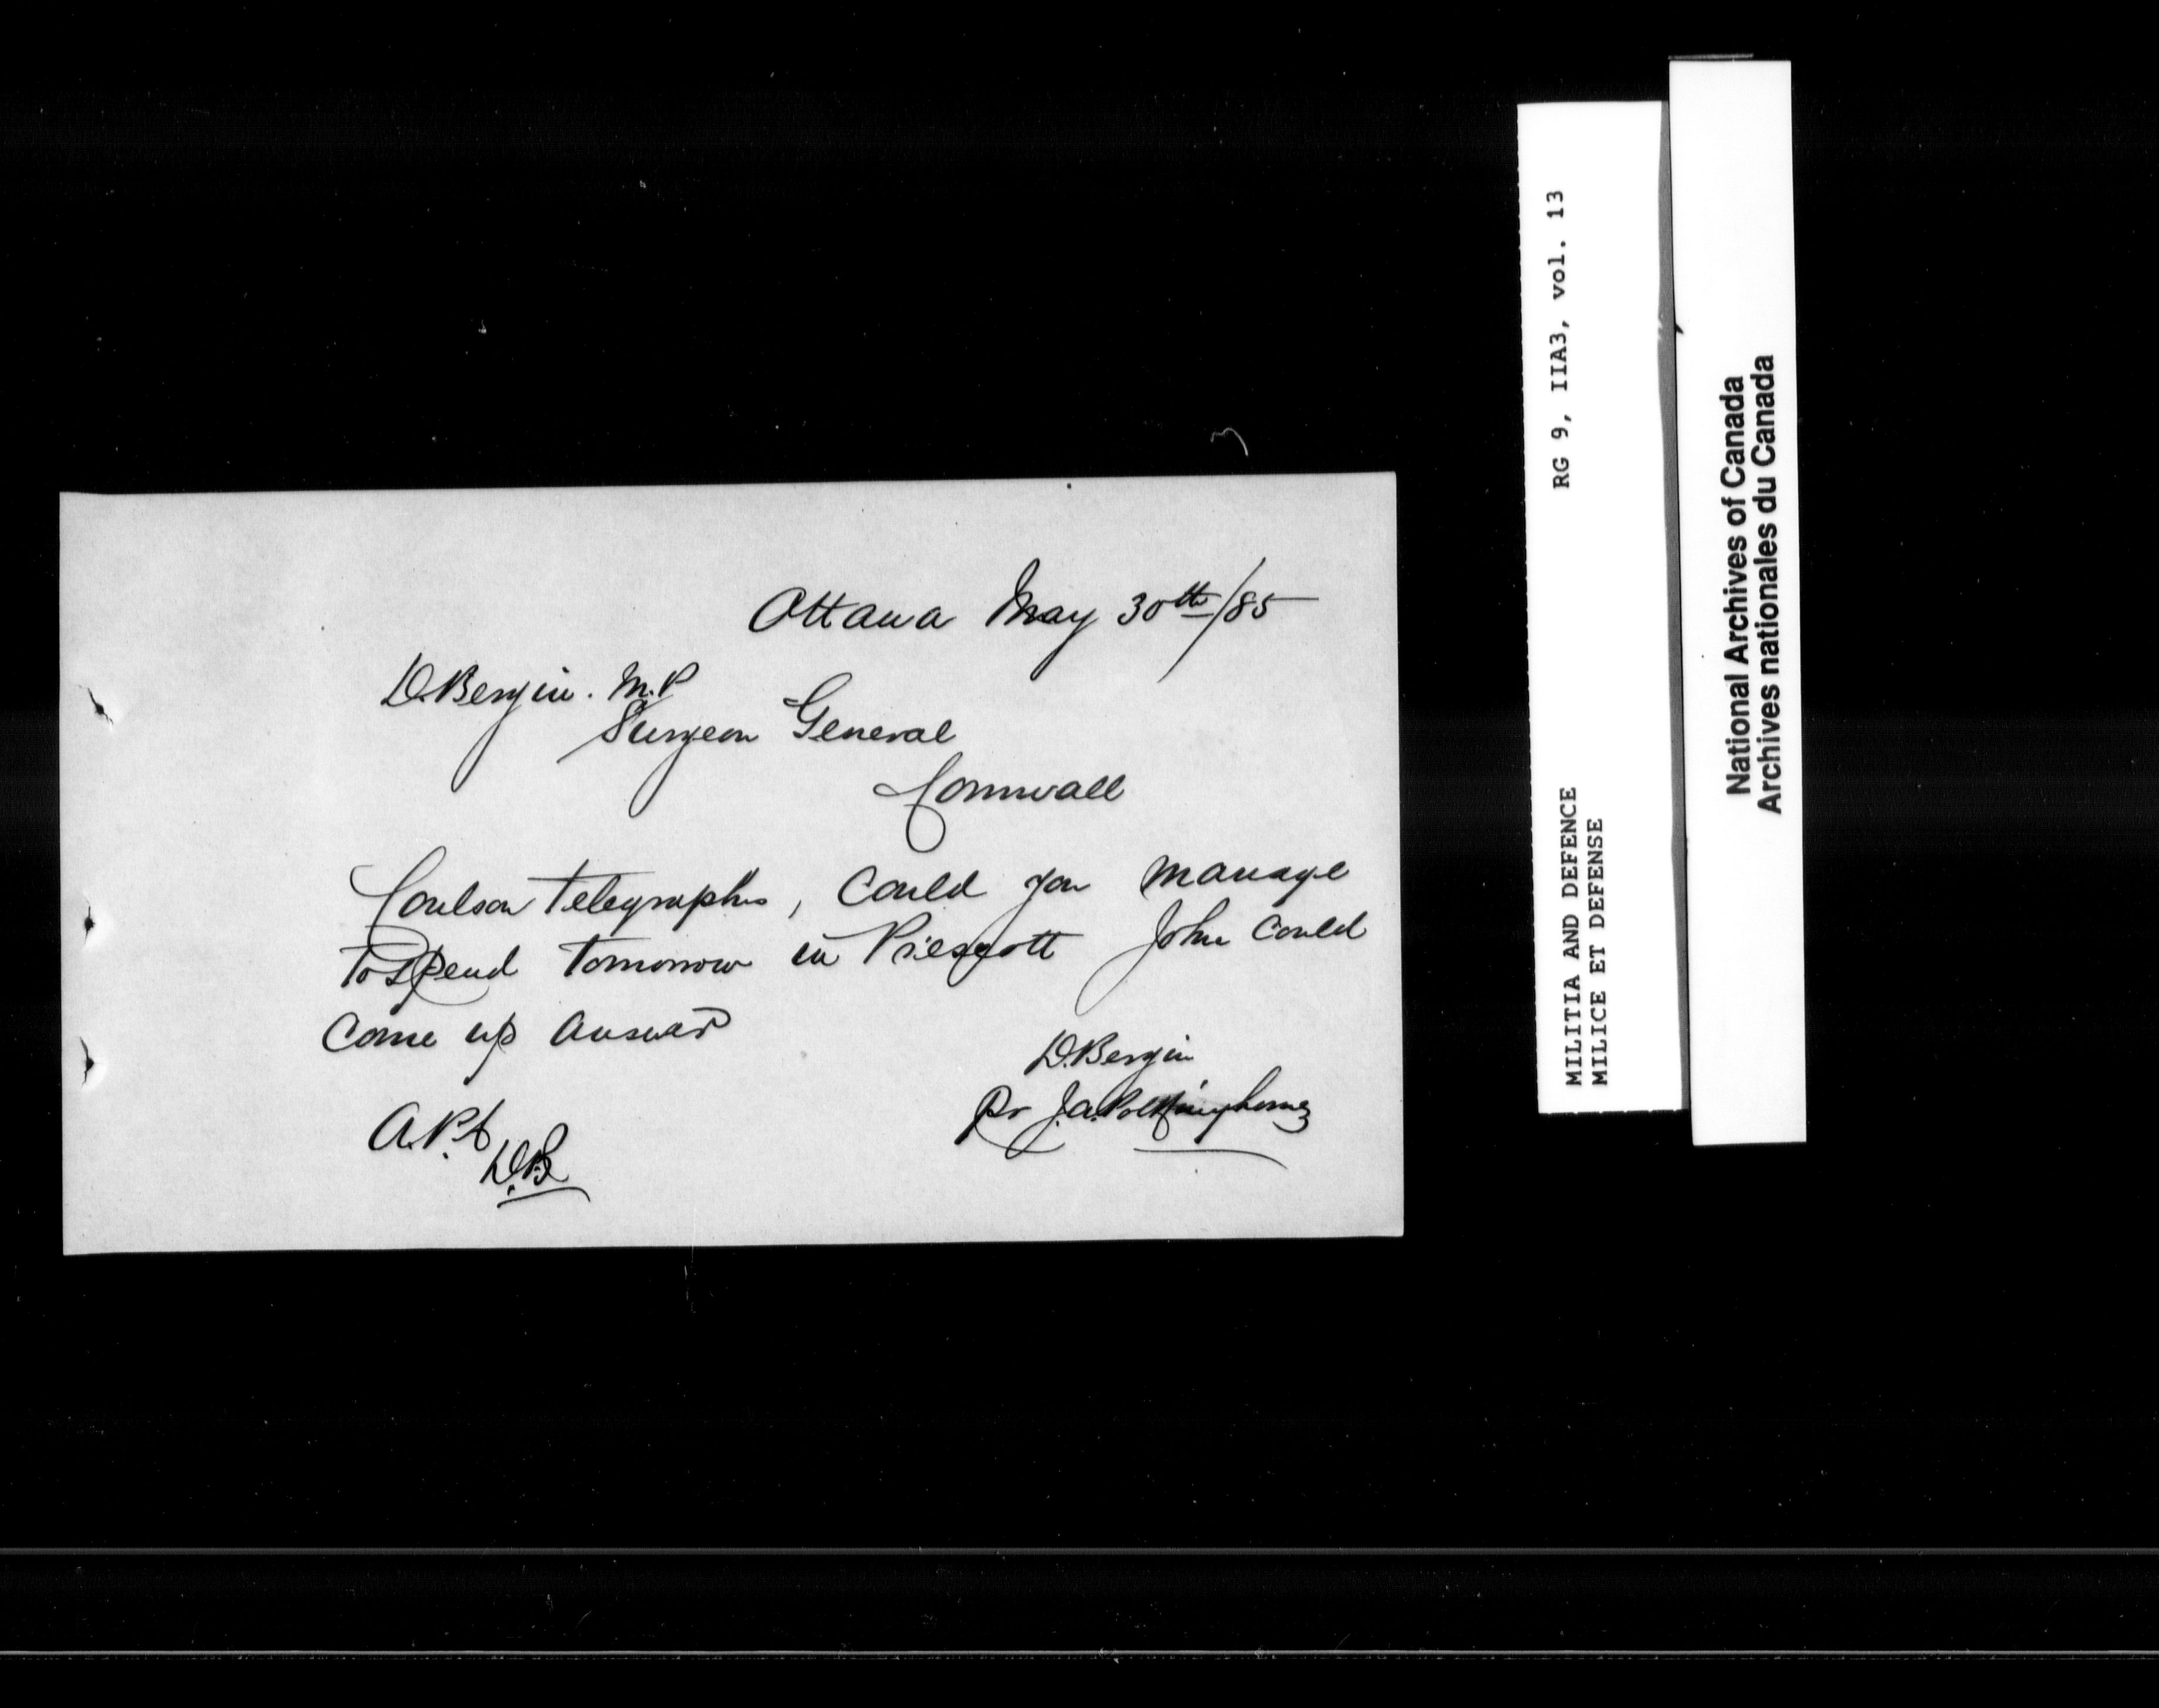 Ottawa May 30th/85
D. Bergin. M.P
Surgeon General
Cornwall
Coulson telegraphs, Could you manage
to spend tomorrow in Prescott John could
come up answer
D. Bergin
Pr J.A.
A.P.
D.B
RG 9, IIA3, vol. 13
MILITIA AND DEFENCE
MILICE ET DEFENSE
National Archives of Canada
Archives nationales du Canada